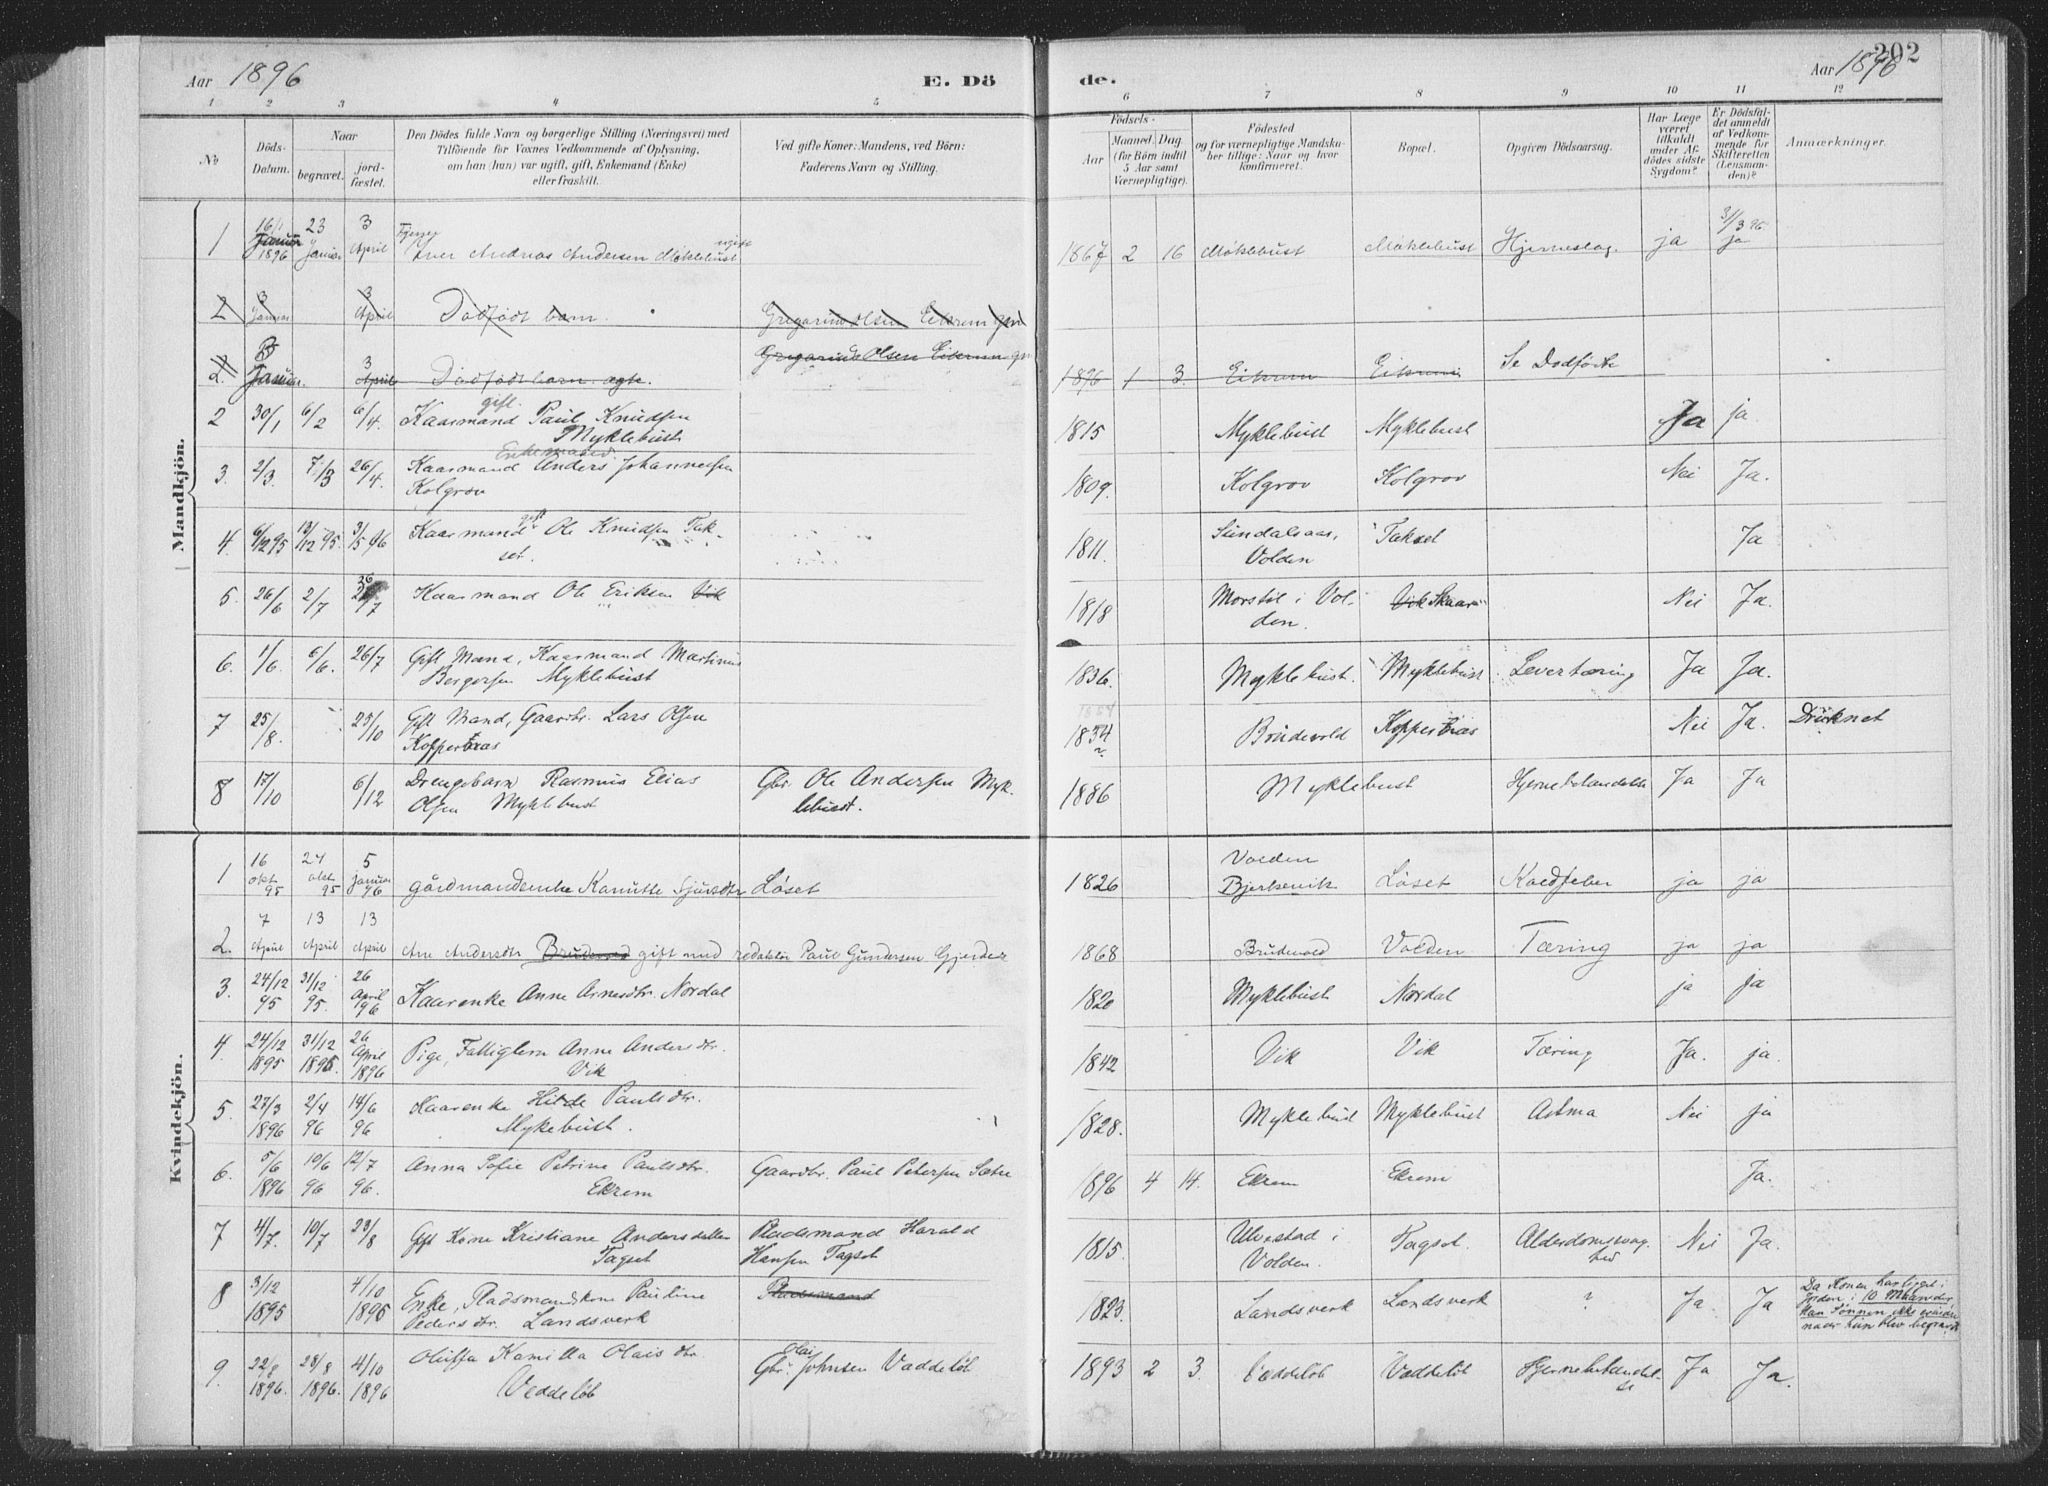 Aar 1896
E. Dö
de.
Aar 1896
202
1 2 3 4 5 6 7 8 9 10 11 12
No
Döds-Datum.
Naar
begravet.
jord-fæstet.
Den Dödes fulde Navn og borgerlige Stilling (Næringsvei) med
Tilföiende for Voxnes Vedkommende af Oplysning,
om han (hun) var ugift, gift, Enkemand (Enke)
eller fraskilt.
Ved gifte Koner: Mandens, ved Börn:
Faderens Navn og Stilling.
Födsels-
Aar
Maaned. Dag.
(for Börn indtil
5 Aar samt
Værnepligtige).
Födested
og for værnepligtige Mandska-
ber tillige: Naar og hvor
konfirmeret.
Bopæl.
Opgiven Dödsaarsag.
Har Læge
været
tilkaldt
under Af-
dödes sidste
Sygdom?
Er Dödsfal-
det anmeldt
af Vedkom-
mende for
Skifteretten
(Lensman-
den)?
Anmærkninger.
Mandkjön.
1 16/1 Januar 1896 23 Januar 3 April Iver Andreas Andersen Möklebust ugift 1867 2 16 Möklebust Möklebust Hjerneslag ja 31/3 96 ja
2 3 Januar 3 April Dödfödt barn Gregorius Olsen Eikrem gm
2. Januar 3 April Dödfödt barn ægte. Gregorius Olsen Eikrem gm 1896 1 3 Eikrem Eikrem Se Dodfödte
2 30/1 6/2 6/4. Kaarmand gift. Paul Knudsen
Myklebust 1815 Myklebust Myklebust Ja ja
3. 2/3. 7/3 26/4. Kaarmand Enkemand Anders Johannesen
Kolgrov 1809. Kolgrov Kolgrov Nei Ja.
4. 6/12 95 13/12 95. 3/5 96 Kaarmand gift Ole Knudsen Tak-
set. 1811. Sundalsaas, Volden Takset Ja
5. 26/6 2/7 26/7 Kaarmand Ole Eriksen Vik 1818 Morstöl i Vol-
den. Vik Skaar Nei Ja.
6. 1/6. 6/6. 26/7 Gift Mand, Kaarmand Martinus
Bergersen Myklebust 1836. Myklebust. Myklebust Levertæring Ja Ja.
7 25/8. 25/10 Gift Mand, Gaardbr. Lars Olsen
Koppernæs 1834 Brudevold Koppernæs Nei Ja. Druknet
8 17/10 6/12 Drengebarn Rasmus Elias
Olsen Myklebust Gbr. Ole Andersen Myk-
lebust. 1886 Myklebust Hjernebetændelse Ja Ja
Kvindekjön.
1 16 okt 95 24 okt 95 5 januar 96 gårdmandenke Kanutte Sjursdtr Löset 1826 Volden
Bjerkevik Löset Koldfeber ja ja
2. 7 April 13 April 13 April Ane Andersdtr Brudevold gift med redaktör Paul Gundersen Gjerder 1868 Brudevold Volden Tæring ja ja
3. 24/12 95 31/12 95. 26 April 96 Kaarenke Anne Arnesdtr. Nordal 1820 Myklebust Nordal ja ja
4. 24/12 1895 31/12 1895. 26 April 1896 Pige, Fattiglem Anne Andersdtr.
Vik 1842 Vik Vik Tæring Ja. ja.
5. 27/3 1896 2/4 96 14/6 96 Kaarenke Hilde Paulsdtr.
Mykebust. 1828. Myklebust Myklebust Astma Nei ja
6. 5/6 1896 10/6 96 12/7 96. Anna Sofie Petrine Paulsdtr.
Ekrem Gaardbr. Paul Petersen Sætre 1896 4 14. Ekrem Ekrem Ja.
7 4/7. 10/7 23/8 Gift Kone Kristiane Andersdatter
Tagset Pladsmand Harald
Hansen Tagset 1815. Ulvestad i
Volden. Tagset. Alderdomssvag-
hed Nei Ja.
8 3/12 1895 4/10 1896 Enke, Pladsmandskone Pauline
Pedersdtr. Landsverk Pladsmand 1823. Landsverk Landsverk ? Ja. Ja Da Konen har ligget i
Jorden i 10 Maaneder
kan Sönnen ikke erindre
naar hun blev begravet
9. 22/8 1896. 28/8 1896. 4/10 1896 Oluffa Kamilla Olais dtr.
Vaddelöb Gbr. Olai Johnsen Vaddelöb 1893 2 3. Vaddelöb Vaddelöb Hjernebetændel-
se Ja Ja.